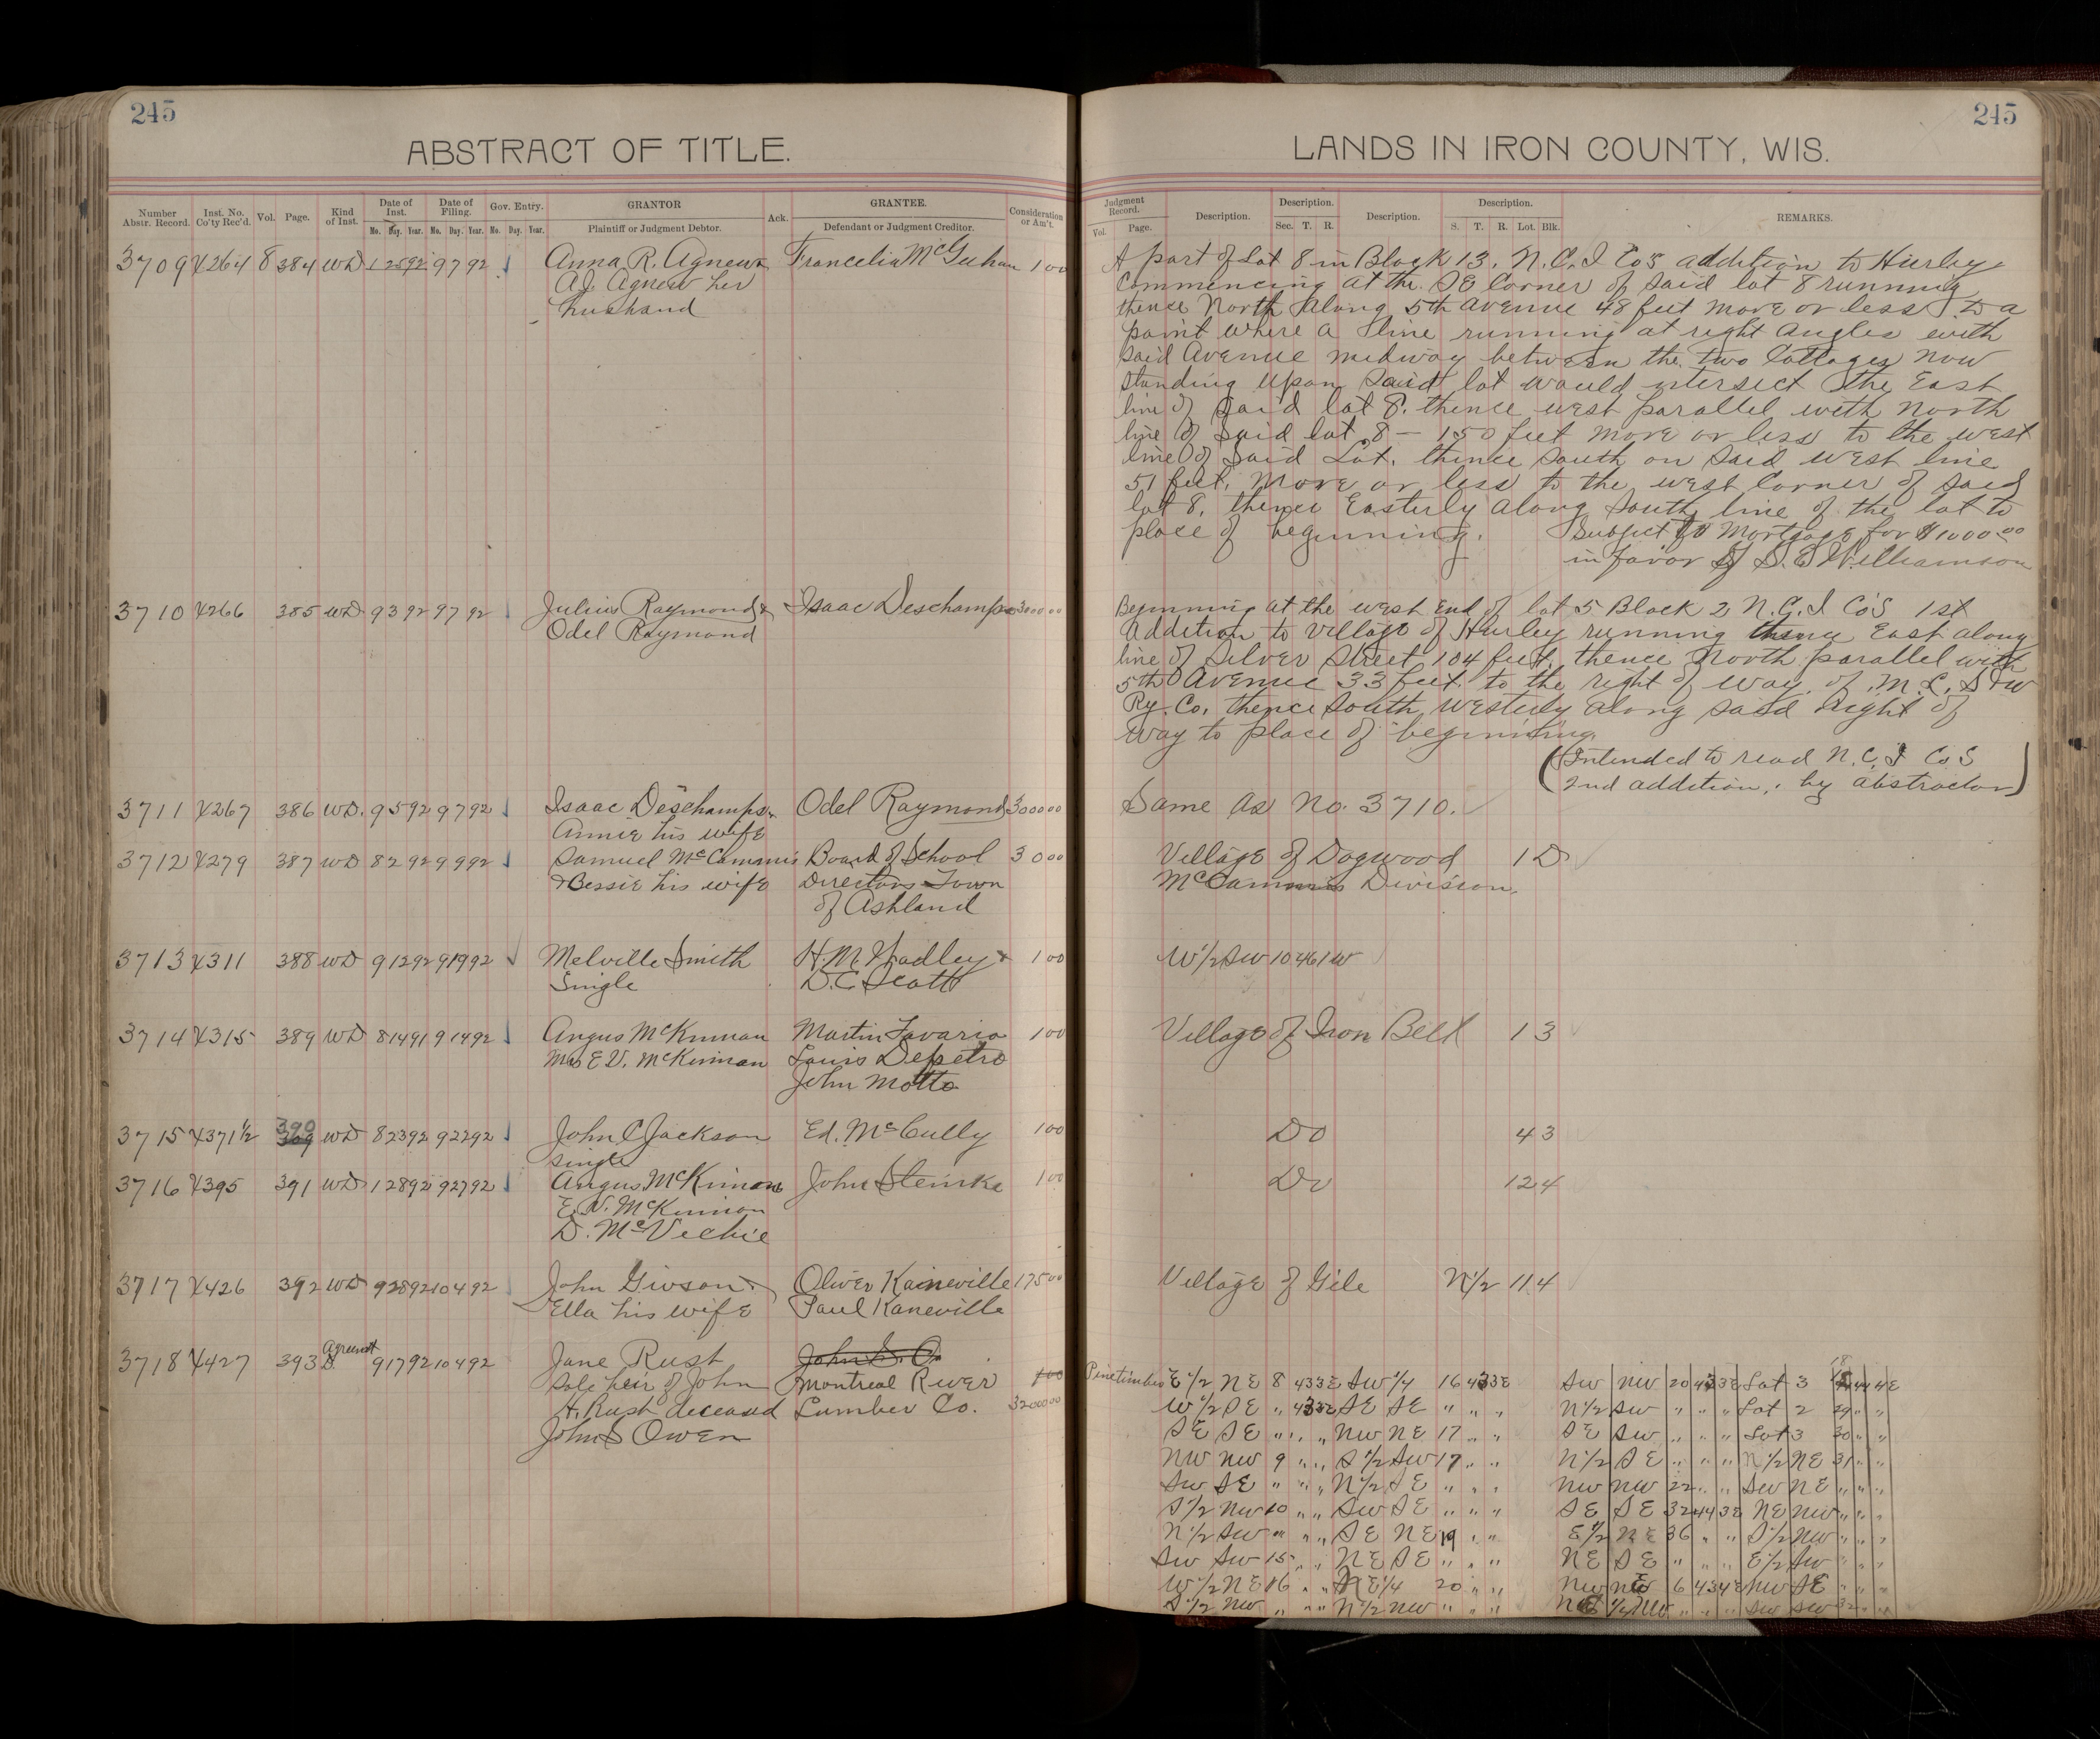 245
ABSTRACT OF TITLE.
Number Abstr. Record. Inst. No. Co'ty Rec'd. Vol. Page. Kind of Inst. Date of Inst. Mo. Day. Year. Date of Filing. Mo. Day. Year. Gov. Entry. No. Day. Year. GRANTOR Plaintiff or Judgment Debtor. Ack. GRANTEE. Defendant or Judgment Creditor. Consideration or Am't.
3709 4264 8 384 WD 1 25 92 9 7 92 Anna R. Agnew & Francelia McGeehan 1 00
A.J. Agnew her
husband
3710 4266 385 WD 9 3 92 9 7 92 Julius Raymond & Isaac Deschamps 3000 00
Odel Raymond
3711 4267 386 WD. 9 5 92 9 7 92 Isaac Deschamps & Odel Raymond 3000 00
Annie his wife
3712 4279 387 WD 8 2 92 9 9 92 Samuel McCammis Board of School 30 00
& Bessie his wife Directors Town
of Ashland
3713 4311 388 WD 9 12 92 9 19 92 Melville Smith H.M. Hadley & 1 00
Single D.C. Scott
3714 4315 389 WD 8 14 91 9 14 92 Angus McKinnan Martin Tavario 1 00
Mrs E.V. McKinnan Louis Depetro
John Motto
3715 4371½ 390 WD 8 23 92 9 22 92 John C Jackson Ed. McCully 1 00
single
3716 4395 391 WD 1 28 92 9 27 92 Angus McKinnon John Steinke 1 00
E.V. McKinnon
D. McVechie
3717 4426 392 WD 9 28 92 10 4 92 John Givson & Oliver Kaineville 175 00
Ella his wife Paul Kaneville
3718 4427 393 Agreemt D. 9 17 92 10 4 92 Jane Rush John S. O.
sole heir of John Montreal River 1 00
A. Rush deceased Lumber Co. 32000 00
John S Owen
245
LANDS IN IRON COUNTY, WIS.
Judgment Record. Vol. Page. Description. Description. Sec. T. R. Description. Description. S. T. R. Lot. Blk. REMARKS.
A part of Lot 8 in Block 13, N.C.I Co's addition to Hurley
Commencing at the SE Corner of said lot 8 running
thence North along 5th Avenue 48 feet more or less to a
point where a line running at right angles with
said Avenue midway between the two Cottages now
standing upon said lot would intersect the East
line of said lot 8. thence west parallel with north
line of said lot 8 – 150 feet more or less to the west
line of said Lot. thence south on said west line
51 feet. more or less to the west Corner of said
lot 8. thence Easterly along South line of the lot to
place of beginning. Subject to Mortgage for $1000.00
in favor of S.E. Williamson
Beginning at the west End of lot 5 Block 2 N.C.I Co's 1st
Addition to village of Hurley running thence East along
line of Silver Street 104 feet. thence North parallel with
5th Avenue 33 feet to the right of way of M.L.S & W
Ry. Co. thence South westerly along said Right of
way to place of beginning.
(Intended to read N.C.I Co's
2nd addition, by abstractor)
Same as No. 3710.
Village of Dogwood 1 D
McCammis Division.
W½ SW 10 46 1W
Village of Iron Belt 1 3
Do 4 3
Do 12 4
Village of Gile N½ 11 4
Pine timber E½ NE 8 43 3E SW¼ 16 43 3E SW NW 20 43 3E Lot 3 18 44 4E
W½ SE " 43 3E SE SE " " " N½ SW " " " Lot 2 29 " "
SE SE " " " NW NE 17 " " SE SW " " " Lot 3 30 " "
NW NW 9 " " S½ SW 17 " " N½ SE " " " N½ NE 31 " "
SW SE " " " N½ SE " " " NW NW 22 " " SW NE " " "
S½ NW 10 " " SW SE " " " SE SE 32 44 3E NE NW " " "
N½ SW " " " SE NE 19 " " E½ NE 36 " " S½ NW " " "
SW SW 15 " " NE SE " " " NE SE " " " E½ SW " " "
W½ NE 16 " " NE¼ 20 " " NW NW 6 43 4E NW SE " " "
S½ NW " " " N½ NW " " " SW SW 32 " "